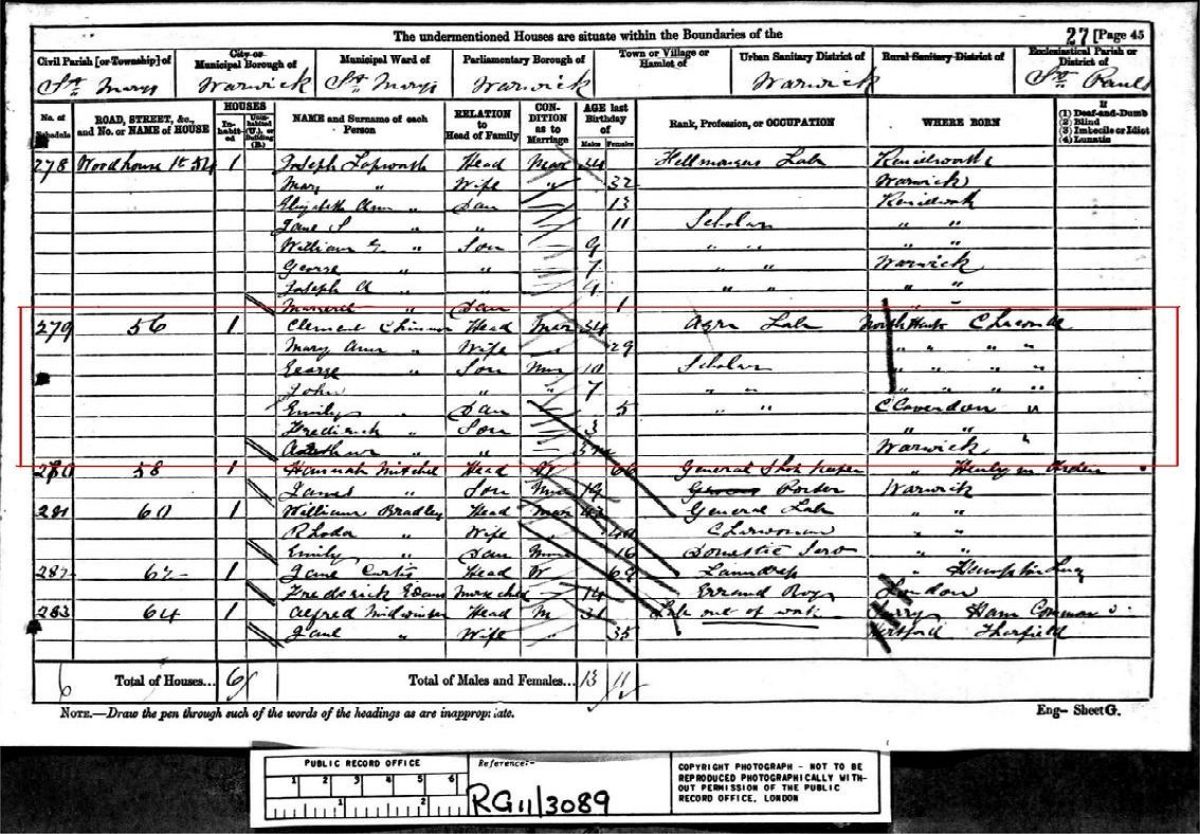 The undermentioned Houses are situate within the Boundaries of the
27 [Page 45
Civil Parish [or Township] of
City or Municipal Borough of
Municipal Ward of
Parliamentary Borough of
Town or Village or Hamlet of
Urban Sanitary District of
Rural Sanitary District of
Ecclesiastical Parish or District of
St Marys Warwick St Marys Warwick Warwick St Pauls
No. of Schedule
ROAD, STREET, &c., and No. or NAME of HOUSE
HOUSES
In-habit-ed
Unin-habited (U.), or Building (B.)
NAME and Surname of each Person
RELATION to Head of Family
CON-DITION as to Marriage
AGE last Birthday of
Males Females
Rank, Profession, or OCCUPATION
WHERE BORN
If
(1) Deaf-and-Dumb
(2) Blind
(3) Imbecile or Idiot
(4) Lunatic
278 Woodhouse St 54 1 Joseph Lapworth Head Mar 34 Lab Kenilworth
Mary " Wife " 32 Warwick
Elizabeth Ann " Dau 13 Kenilworth
Jane S " " 11 Scholar " "
William " Son 9 " " " "
George " " 7 " " Warwick
Joseph A " " 4 " " " "
" Dau 1 " "
279 56 1 Clement Head Mar 34 Agri Lab
Mary Ann " Wife 29 " " " "
George " Son 10 Scholar " " " "
John " " 7 " " " " " "
Emily " Dau 5 " " Claverdon "
Frederick " Son 3 " "
" " Warwick "
280 58 1 Hannah Mitchel Head W 66 General Shop Keeper " Henley in Arden
James " Son 19 Porter Warwick
281 60 1 William Bradley Head Mar 43 General Lab " "
Rhoda " Wife 40 Charwoman " "
Emily " Dau 16 Domestic Serv " "
282 62 1 Jane Curtis Head W 69 Laundress "
Frederick Evans 14 Errand Boy London
283 64 1 Alfred Midwinter Head M 31 Lab out of work Surrey Ham Common
Jane " Wife " 35 Hertford Therfield
6 Total of Houses... 6
Total of Males and Females... 13 11
NOTE.—Draw the pen through such of the words of the headings as are inappropriate.
Eng— Sheet G.
PUBLIC RECORD OFFICE
1 2 3 4 5 6
1 2
Reference:-
RG11/3089
COPYRIGHT PHOTOGRAPH - NOT TO BE
REPRODUCED PHOTOGRAPHICALLY WITH-
OUT PERMISSION OF THE PUBLIC
RECORD OFFICE, LONDON